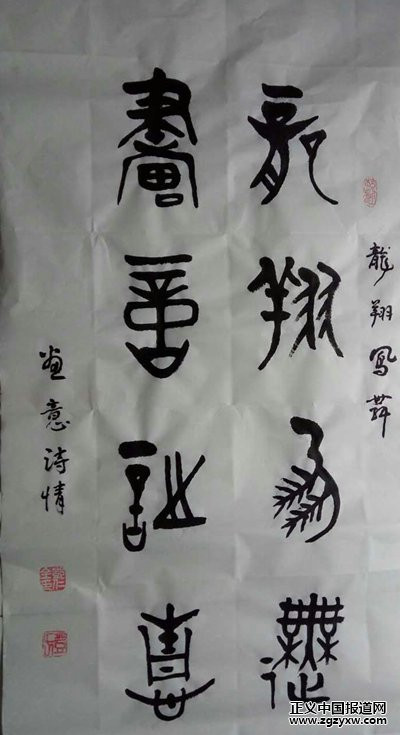 龍翔鳳舞
龍翔鳳舞
畫意詩情
畫意詩情
正义中国报道网
www.zgzyxw.com